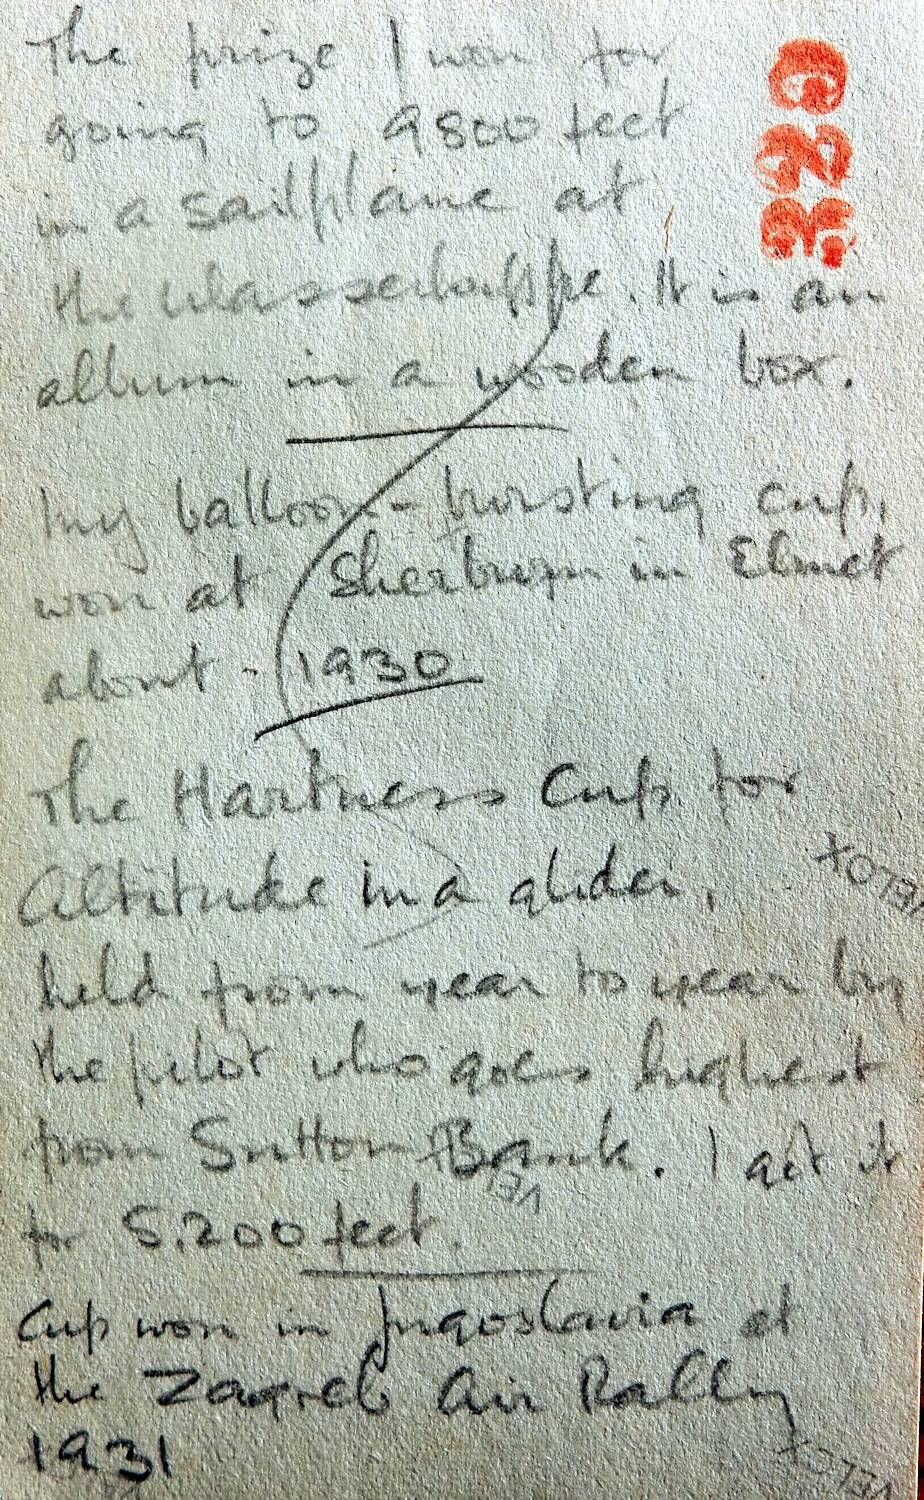 The prize I won for
going to 9800 feet
in a sailplane at
the Wasserkuppe. It is an
album in a wooden box.
My balloon-bursting cup,
won at Sherburn in Elmet
about - 1930
The Hartness Cup for
Altitude in a glider,
held from year to year by
the pilot who goes highest
from Sutton Bank. I got it
for 5,200 feet.
Cup won in Jugoslavia at
the Zagreb Air Rally
1931